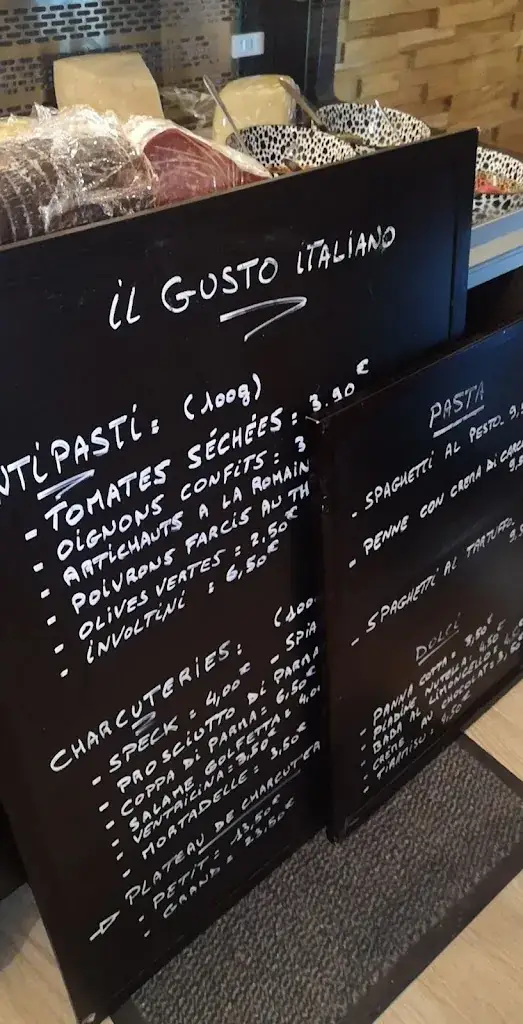 iL GUSTO iTALiANO
NTiPASTi : (100g)
- TOMATES SÉCHÉES : 3.90€
- OIGNONS CONFITS : 3
- ARTICHAUTS A LA ROMAIN
- POIVRONS FARCIS AU TH
- OLIVES VERTES : 2.50€
- iNVOLTiNi : 6,50€
CHARCUTERIES : (100
- SPECK : 4,00€ - SPIA
- PROSCIUTTO Di PARMA
- COPPA Di PARMA : 6.50€
- SALAME GOLFETTA : 4.0
- VENTRICINA : 3,50€
- MORTADELLE : 3,50€
PLATEAU DE CHARCUTER
- PETIT : 13,50€
- GRAND : 23,50€
PASTA
- SPAGHETTI AL PESTO 9,
- PENNE CON CREMA Di CARC
9,5
- SPAGHETTI AL TARTUFO
9,5
DOLCI
- PANNA COTTA : 3,50€
- PIADINE NUTELLA : 4,50€
- BABA AL LIMONCELLO :
- CREME AU CHOCOLAT : 3,
- TIRAMISU : 4,50€